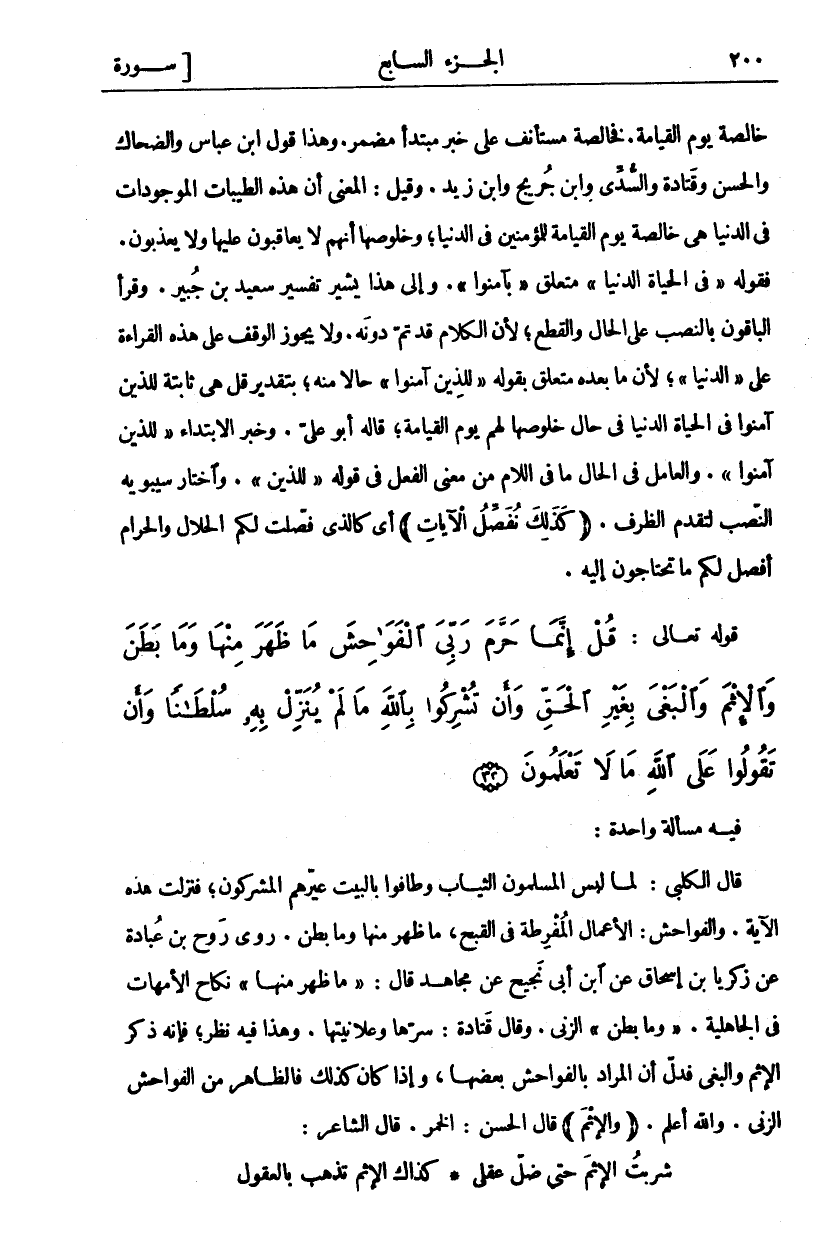 ٢٠٠ الجـزء السـابع [ ســورة
خالصة يوم القيامة. فخالصة مستأنف على خبر مبتدأ مضمر. وهذا قول ابن عباس والضحاك
والحسن وقَتادة والسُّدِّى وابن جُريج وابن زيد . وقيل : المعنى أن هذه الطيبات الموجودات
فى الدنيا هى خالصة يوم القيامة للمؤمنين فى الدنيا؛ وخلوصها أنهم لا يعاقبون عليها ولا يعذبون.
فقوله « فى الحياة الدنيا » متعلق « بآمنوا ». وإلى هذا يشير تفسير سعيد بن جُبير . وقرأ
الباقون بالنصب على الحال والقطع؛ لأن الكلام قد تمّ دونَه. ولا يجوز الوقف على هذه القراءة
على « الدنيا »؛ لأن ما بعده متعلق بقوله « للذِين آمنوا » حالا منه؛ بتقدير قل هى ثابتة للذين
آمنوا فى الحياة الدنيا فى حال خلوصها لهم يوم القيامة؛ قاله أبو علىّ . وخبر الابتداء « للذين
آمنوا » . والعامل فى الحال ما فى اللام من معنى الفعل فى قوله « للذين » . وآختار سيبويه
النّصب لتقدم الظرف . ﴿ كَذَلِكَ نُفَصِّلُ الْآيَاتِ ﴾ أى كالذى فصّلت لكم الحلال والحرام
أفصل لكم ما تحتاجون إليه .
قوله تعـالى : قُلْ إِنَّمَـا حَرَّمَ رَبِّىَ ٱلْفَوَٰحِشَ مَا ظَهَرَ مِنْهَا وَمَا بَطَنَ
وَٱلْإِثْمَ وَٱلْبَغْىَ بِغَيْرِ ٱلْحَقِّ وَأَن تُشْرِكُوا بِٱللَّهِ مَا لَمْ يُنَزِّلْ بِهِۦ سُلْطَـٰنًا وَأَن
تَقُولُوا عَلَى ٱللَّهِ مَا لَا تَعْلَمُونَ ٣٣
فيـه مسألة واحدة :
قال الكلبى : لمـا لبس المسلمون الثيـاب وطافوا بالبيت عيّرهم المشركون؛ فنزلت هذه
الآية . والفواحش: الأعمال المُفْرِطة فى القبح، ما ظهر منها وما بطن . روى رَوح بن عُبادة
عن زكريا بن إسحاق عن آبن أبى نَجيح عن مجاهـد قال : « ما ظهر منهـا » نكاح الأمهات
فى الجاهلية . « وما بطن » الزنى . وقال قَتادة : سرّها وعلانيتها . وهذا فيه نظر؛ فإنه ذكر
الإثم والبغى فدلّ أن المراد بالفواحش بعضهـا ، وإذا كان كذلك فالظاهر من الفواحش
الزنى . والله أعلم . ﴿ والإِثْمَ ﴾ قال الحسن : الخمر . قال الشاعر :
شربتُ الإثمَ حتى ضلّ عقلى * كذاك الإثم تذهب بالعقول